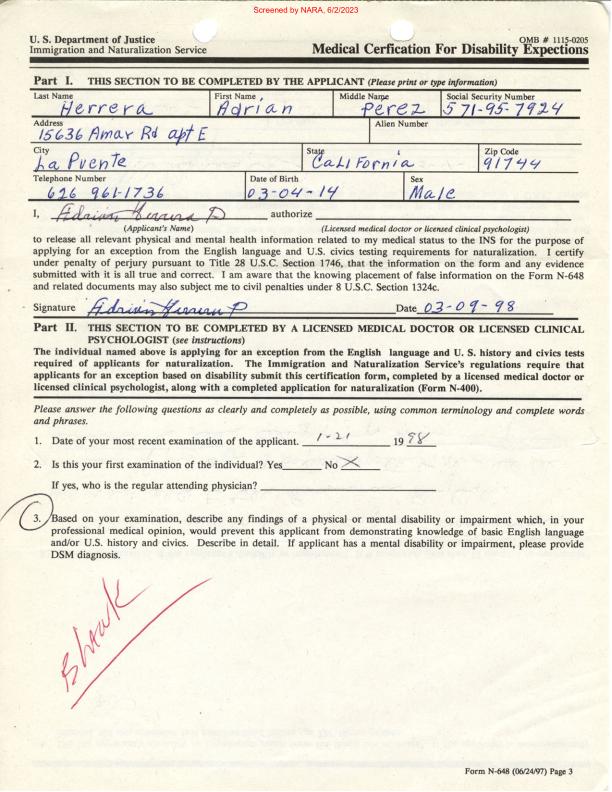 Screened by NARA, 6/2/2023
U. S. Department of Justice
Immigration and Naturalization Service
OMB # 1115-0205
Medical Cerfication For Disability Expections
Part I. THIS SECTION TO BE COMPLETED BY THE APPLICANT (Please print or type information)
Last Name First Name Middle Name Social Security Number
Herrera Adrian Perez 571-95-7924
Address Alien Number
15636 Amar Rd apt E
City State Zip Code
La Puente California 91744
Telephone Number Date of Birth Sex
626 961-1736 03-04-14 Male
I, Adrian Herrera P authorize
(Applicant's Name) (Licensed medical doctor or licensed clinical psychologist)
to release all relevant physical and mental health information related to my medical status to the INS for the purpose of
applying for an exception from the English language and U.S. civics testing requirements for naturalization. I certify
under penalty of perjury pursuant to Title 28 U.S.C. Section 1746, that the information on the form and any evidence
submitted with it is all true and correct. I am aware that the knowing placement of false information on the Form N-648
and related documents may also subject me to civil penalties under 8 U.S.C. Section 1324c.
Signature Adrian Herrera P Date 03-09-98
Part II. THIS SECTION TO BE COMPLETED BY A LICENSED MEDICAL DOCTOR OR LICENSED CLINICAL
PSYCHOLOGIST (see instructions)
The individual named above is applying for an exception from the English language and U. S. history and civics tests
required of applicants for naturalization. The Immigration and Naturalization Service's regulations require that
applicants for an exception based on disability submit this certification form, completed by a licensed medical doctor or
licensed clinical psychologist, along with a completed application for naturalization (Form N-400).
Please answer the following questions as clearly and completely as possible, using common terminology and complete words
and phrases.
1. Date of your most recent examination of the applicant. 1-21 19 98
2. Is this your first examination of the individual? Yes No X
If yes, who is the regular attending physician?
3. Based on your examination, describe any findings of a physical or mental disability or impairment which, in your
professional medical opinion, would prevent this applicant from demonstrating knowledge of basic English language
and/or U.S. history and civics. Describe in detail. If applicant has a mental disability or impairment, please provide
DSM diagnosis.
Blank
Form N-648 (06/24/97) Page 3